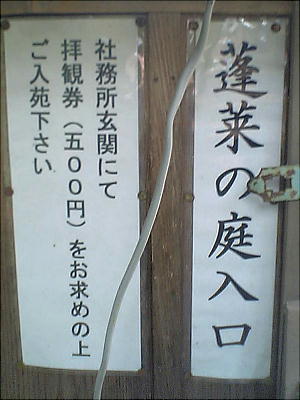 蓬莱の庭入口
社務所玄関にて
拝観券（五００円）をお求めの上
ご入苑下さい